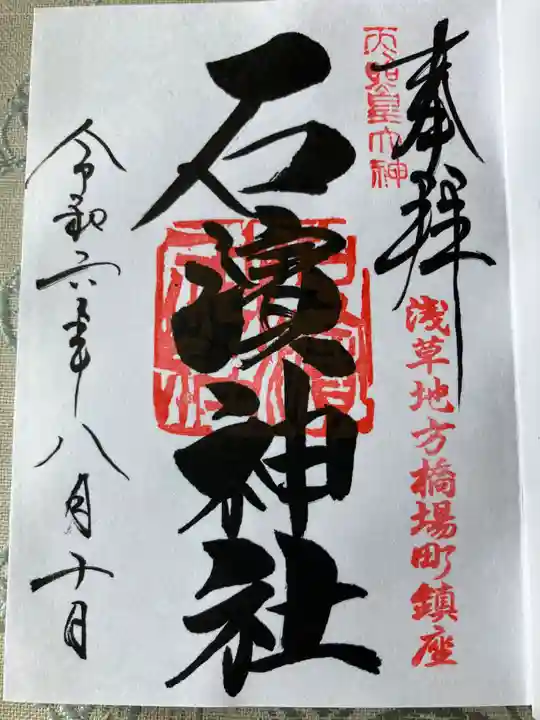 奉拜
天照皇大神
浅草地方橋場町鎮座
石濱神社
令和六年八月十日